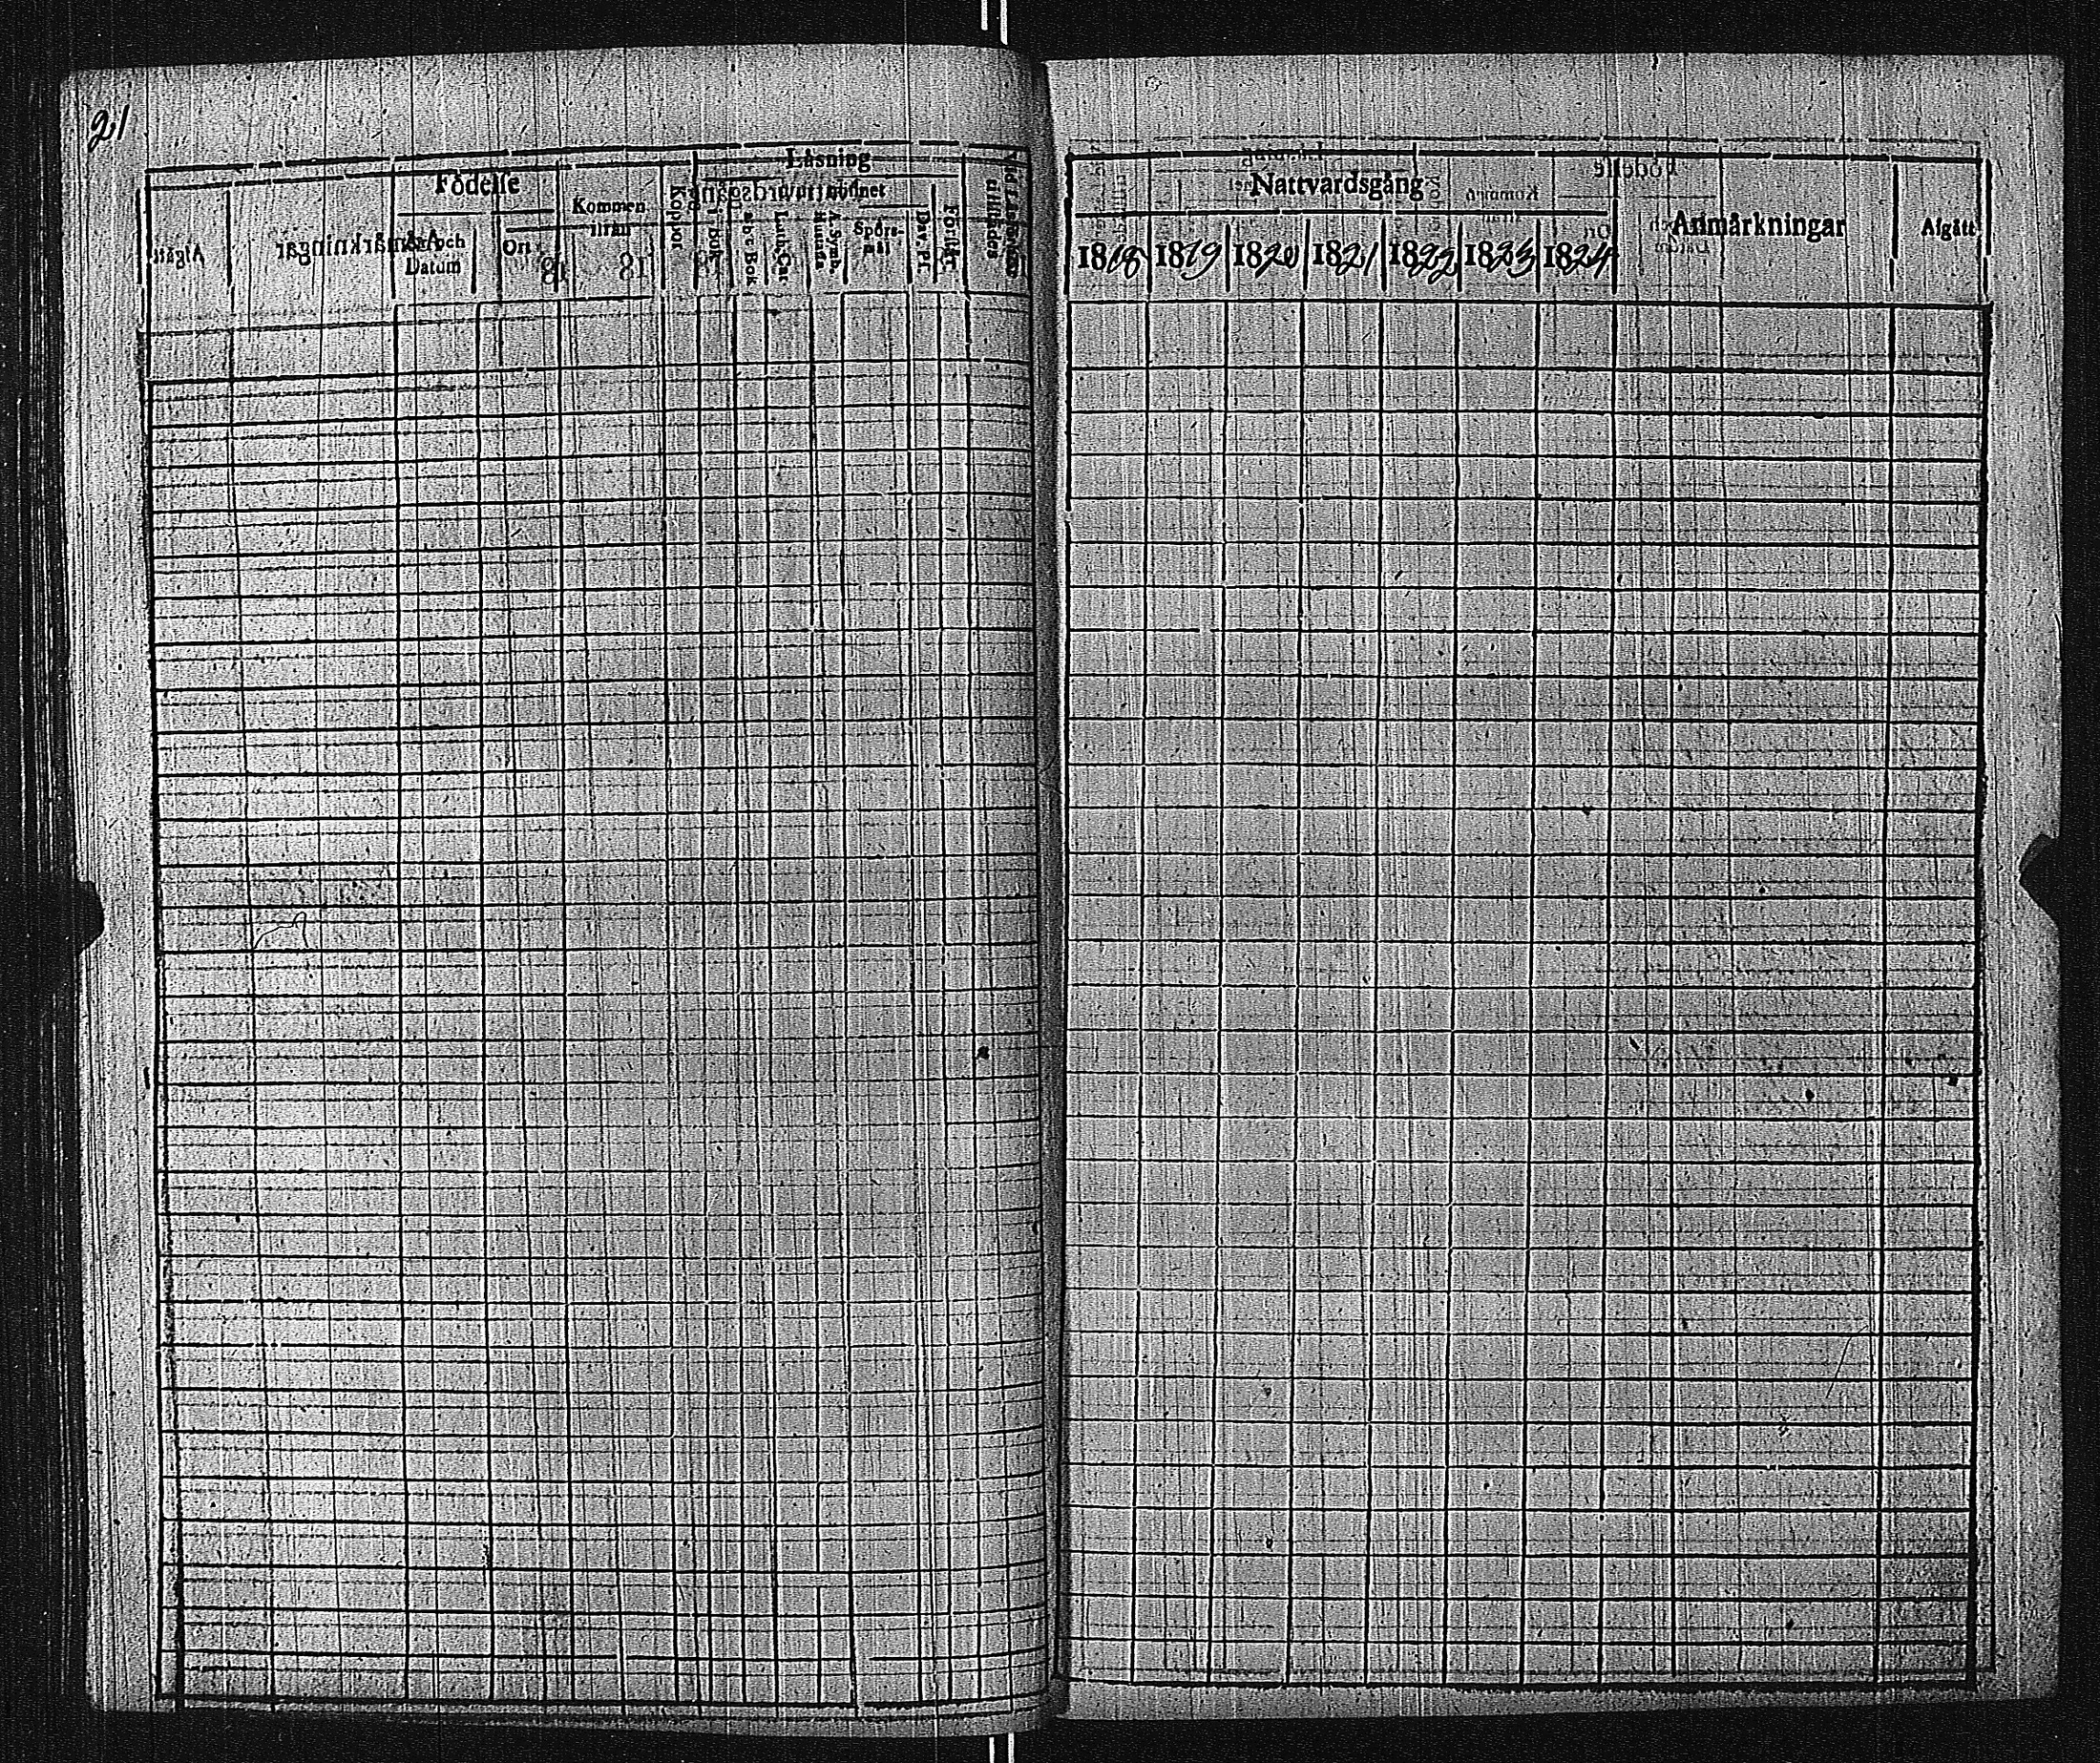 21
Läsning
Födelse
År och Datum
Ort
Kommen ifrån
18
Koppor
i Bok
a b c Bok
Luth. Cat.
A. Symb. Hustafla
Spörsmål
Dav. Ps.
Förhör
Nattvardsgång
1818 1819 1820 1821 1822 1823 1824
Anmärkningar
Afgått